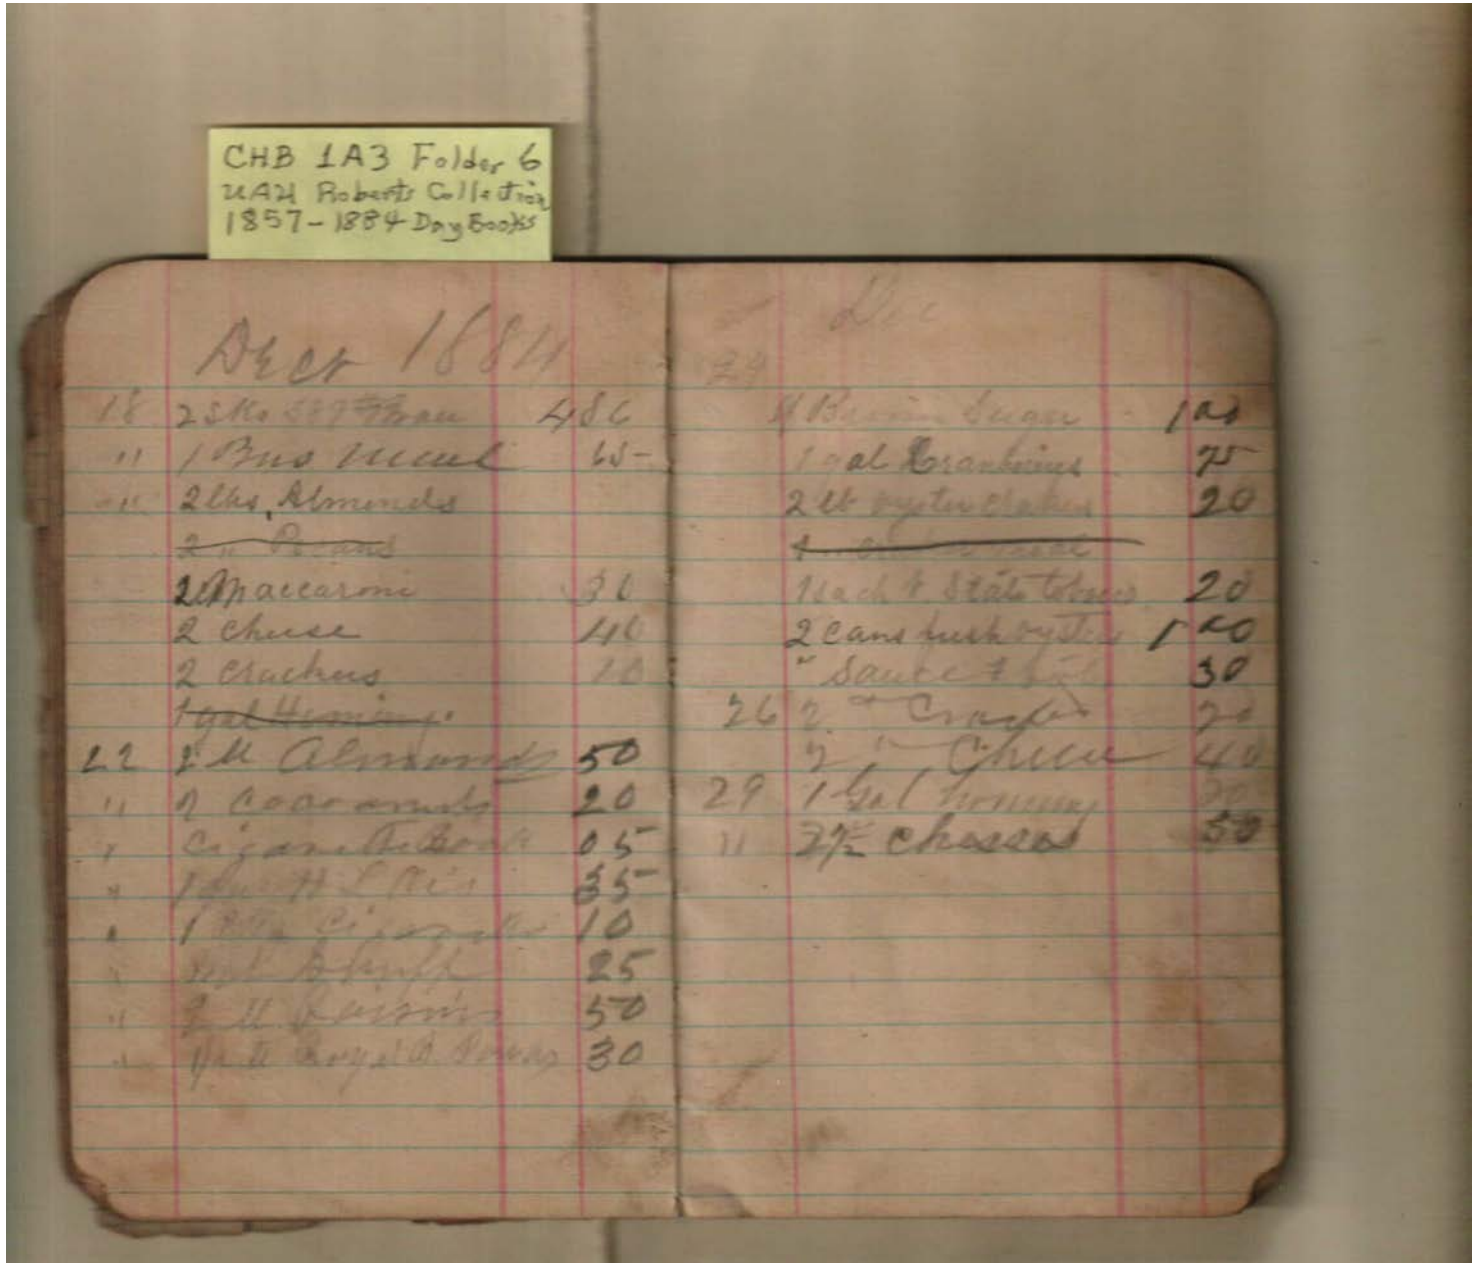 CHB 1A3 Folder 6
UAH Roberts Collection
1857-1884 Day Books
Decr 1884
18 2 sks 4 86
" 1 Bus Meal 65
" 2 lbs, Almonds
2 " Pecans
2 " Maccaroni 30
2 Cheese 40
2 Crackers 10
1 gal Hominy.
22 2 lb Almonds 50
" 2 Cocoanuts 20
" Cigarette Book 05
" 1 35
" 1 10
" Snuff 25
" 2 lb Raisins 50
" Royal B 30
Dec
24
Brown Sugar 1 00
1 gal Cranberries 75
2 lb oyster crakers 20
1 sack State tobacco 20
2 cans fresh oysters 1 00
" Sauce 30
26 2 " Crackers 20
2 " Cheese 40
29 1 Gal hominy
" 2½ cheese 50